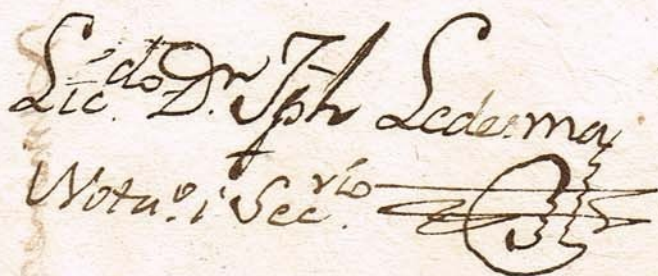 Lic.do Dn Jph Ledesma
Nota.o i Sec.rio